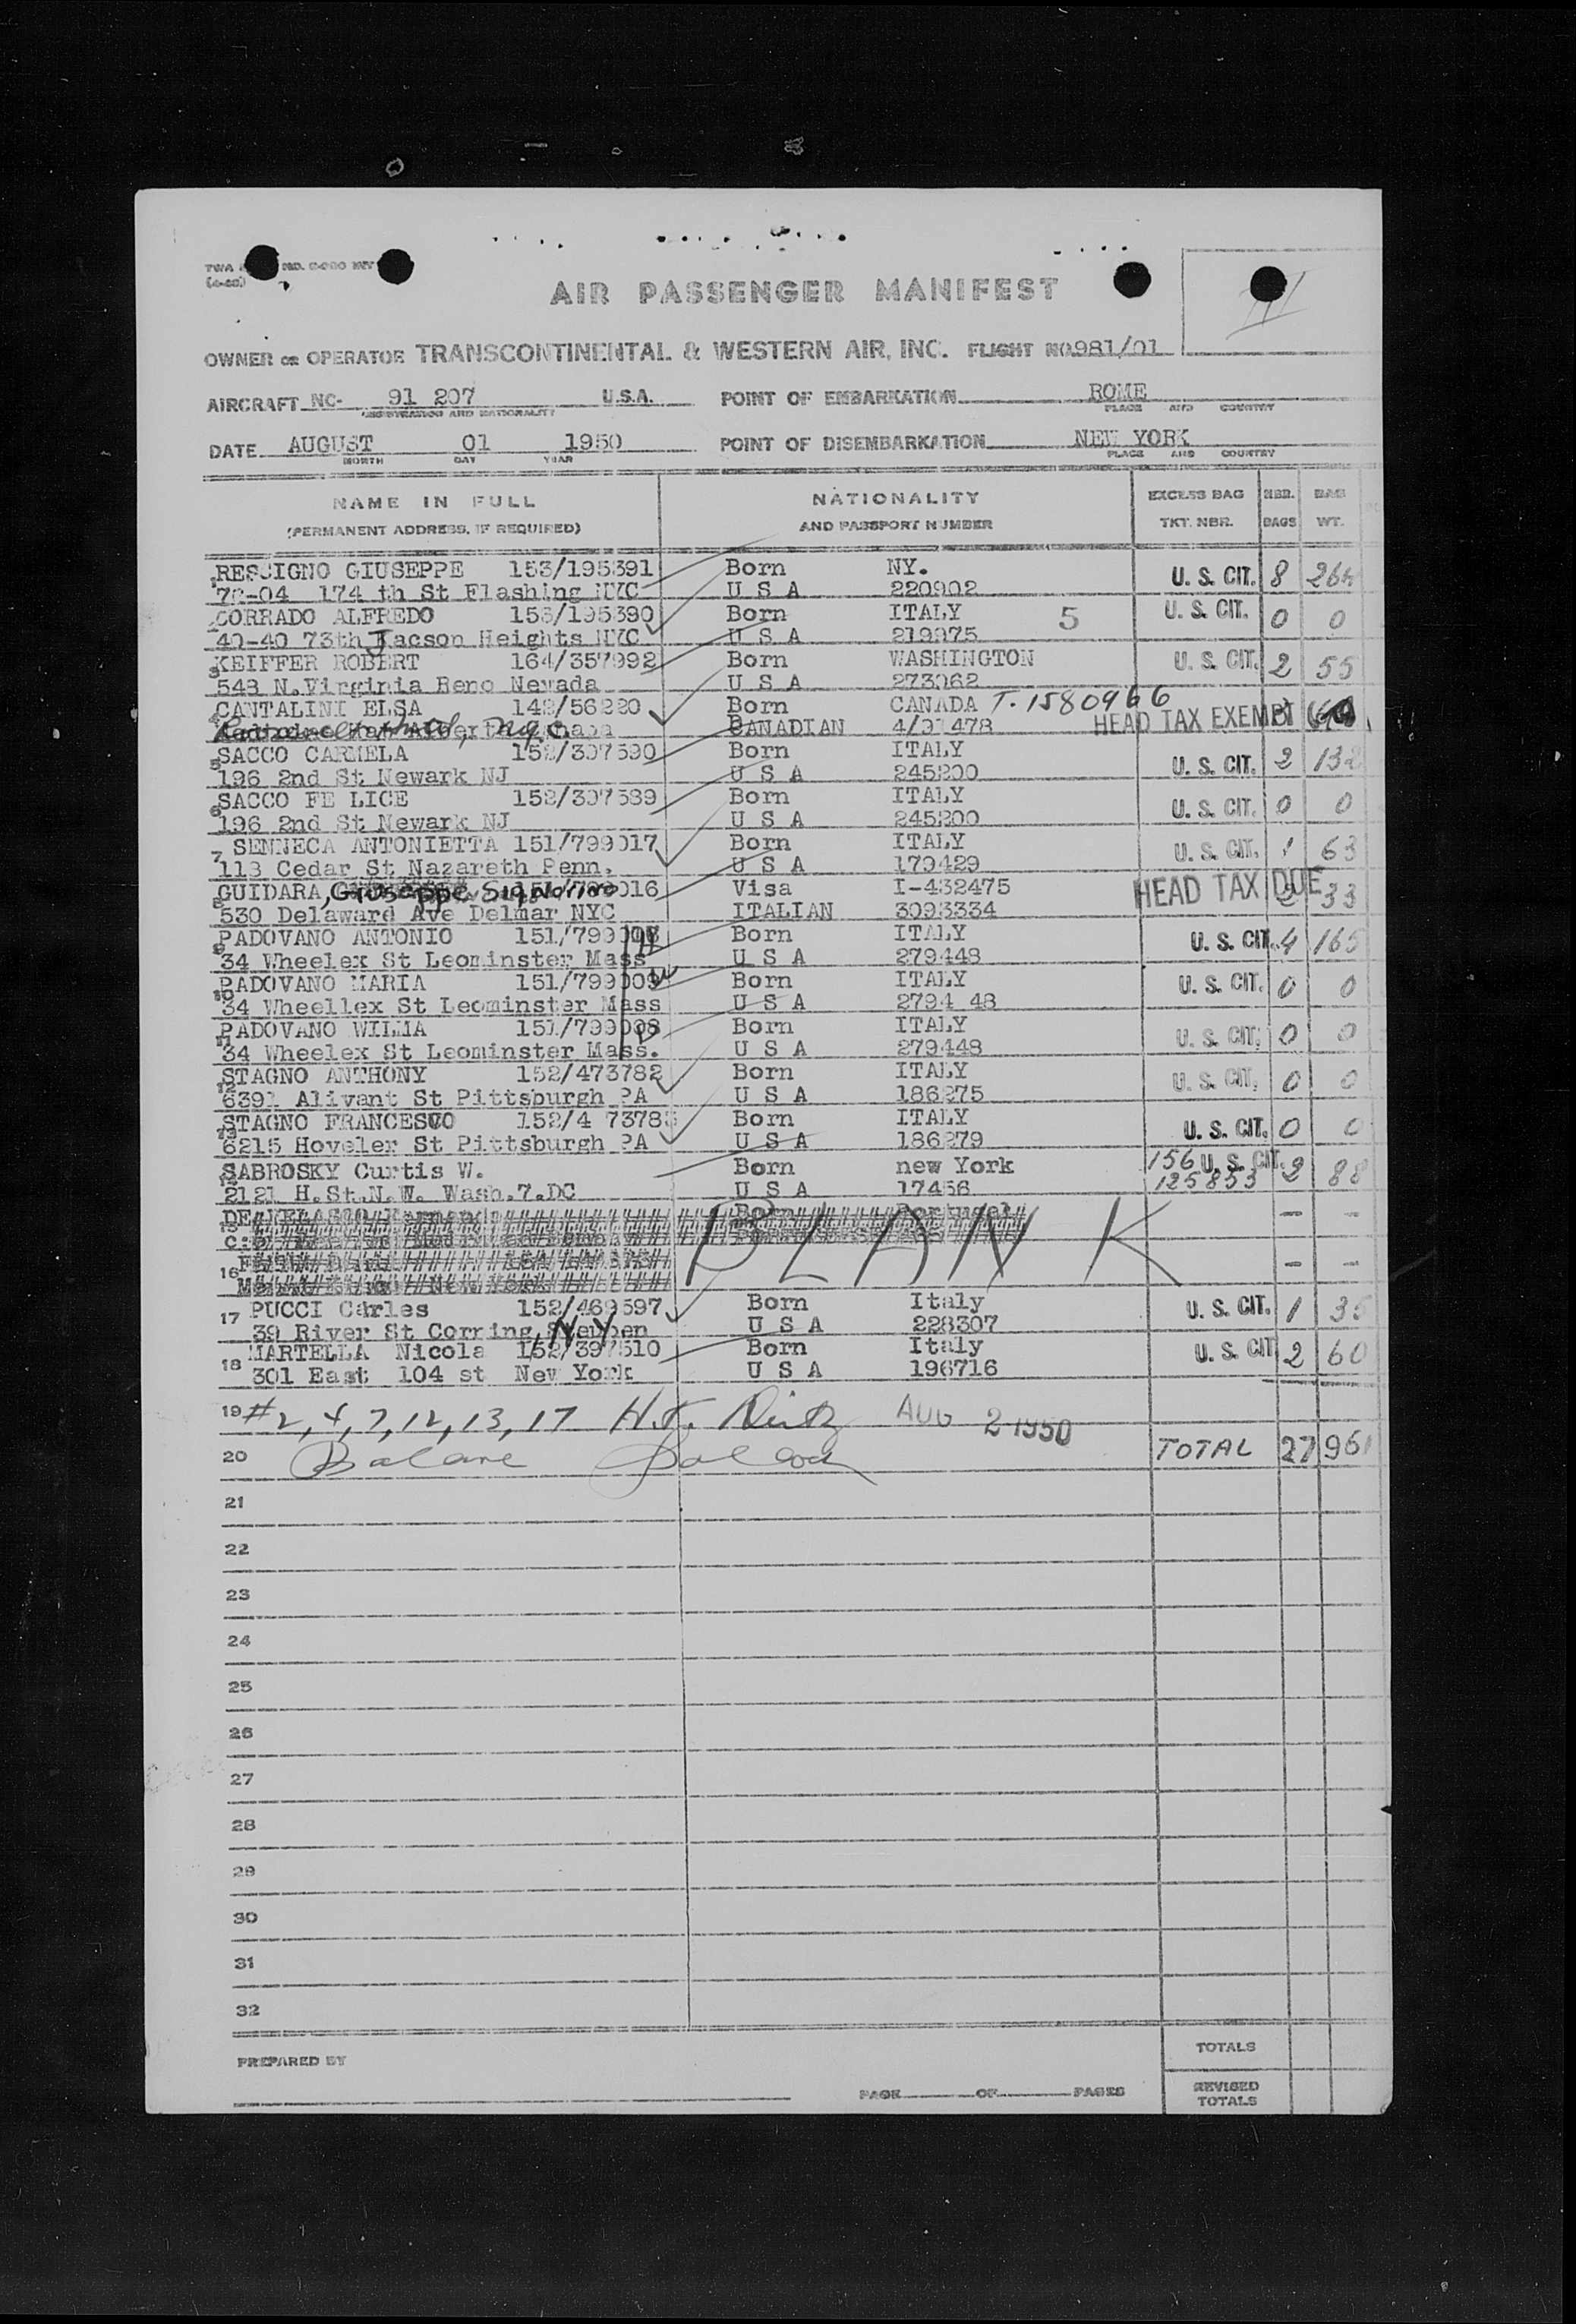 AIR PASSENGER MANIFEST
OWNER OR OPERATOR TRANSCONTINENTAL & WESTERN AIR, INC. FLIGHT NO. 981/01
AIRCRAFT NC- 91 207 U.S.A. POINT OF EMBARKATION ROME
REGISTRATION AND NATIONALITY PLACE AND COUNTRY
DATE AUGUST 01 1950 POINT OF DISEMBARKATION NEW YORK
MONTH DAY YEAR PLACE AND COUNTRY
NAME IN FULL NATIONALITY EXCESS BAG NBR. BAG
(PERMANENT ADDRESS, IF REQUIRED) AND PASSPORT NUMBER TKT. NBR. BAGS WT.
RESCIGNO GIUSEPPE 153/195391 Born NY. U. S. CIT. 8 264
174 th St Flashing NYC U S A 220902
CORRADO ALFREDO 153/195390 Born ITALY 5 U. S. CIT. 0 0
40-40 73th Jacson Heights NYC U S A 219975
3 KEIFFER ROBERT 164/357992 Born WASHINGTON U. S. CIT. 2 55
548 N.Virginia Reno Nevada U S A 273062
CANTALINI ELSA 142/56220 Born CANADA T-1580966
CANADIAN 4/91478 HEAD TAX EXEMPT
5 SACCO CARMELA 152/307590 Born ITALY U. S. CIT. 2 132
196 2nd St Newark NJ U S A 245200
6 SACCO FE LICE 152/307589 Born ITALY U. S. CIT. 0 0
196 2nd St Newark NJ U S A 245200
7 SENNECA ANTONIETTA 151/799017 Born ITALY U. S. CIT. 1 63
113 Cedar St Nazareth Penn. U S A 179429
8 GUIDARA, Giuseppe Signorino 016 Visa I-432475 HEAD TAX DUE 2 33
530 Delaward Ave Delmar NYC ITALIAN 3093334
9 PADOVANO ANTONIO Born ITALY U. S. CIT. 4 165
34 Wheelex St Leominster Mass U S A 279448
10 PADOVANO MARIA 151/799009 Born ITALY U. S. CIT. 0 0
34 Wheellex St Leominster Mass U S A 2794 48
11 PADOVANO WILMA 151/799008 Born ITALY U. S. CIT. 0 0
34 Wheelex St Leominster Mass. U S A 279448
12 STAGNO ANTHONY 152/473782 Born ITALY U. S. CIT. 0 0
6391 Alivant St Pittsburgh PA U S A 186275
13 STAGNO FRANCESCO 152/4 73783 Born ITALY U. S. CIT. 0 0
6215 Hoveler St Pittsburgh PA U S A 186279
SABROSKY Curtis W. Born new York 156 U. S. CIT. 2 88
2121 H.St.N.W. Wash.7.DC U S A 17456 125853
Born Portugal - -
BLANK
16 - -
17 PUCCI Carles 152/469597 Born Italy U. S. CIT. 1 35
39 River St Corning, N.Y U S A 228307
18 MARTELLA Nicola 152/397510 Born Italy U. S. CIT 2 60
301 East 104 st New York U S A 196716
19 #2, 4, 7, 12, 13, 17 AUG 2 1950
20 TOTAL 27 961
21
22
23
24
25
26
27
28
29
30
31
32
PREPARED BY TOTALS
PAGE OF PAGES REVISED
TOTALS